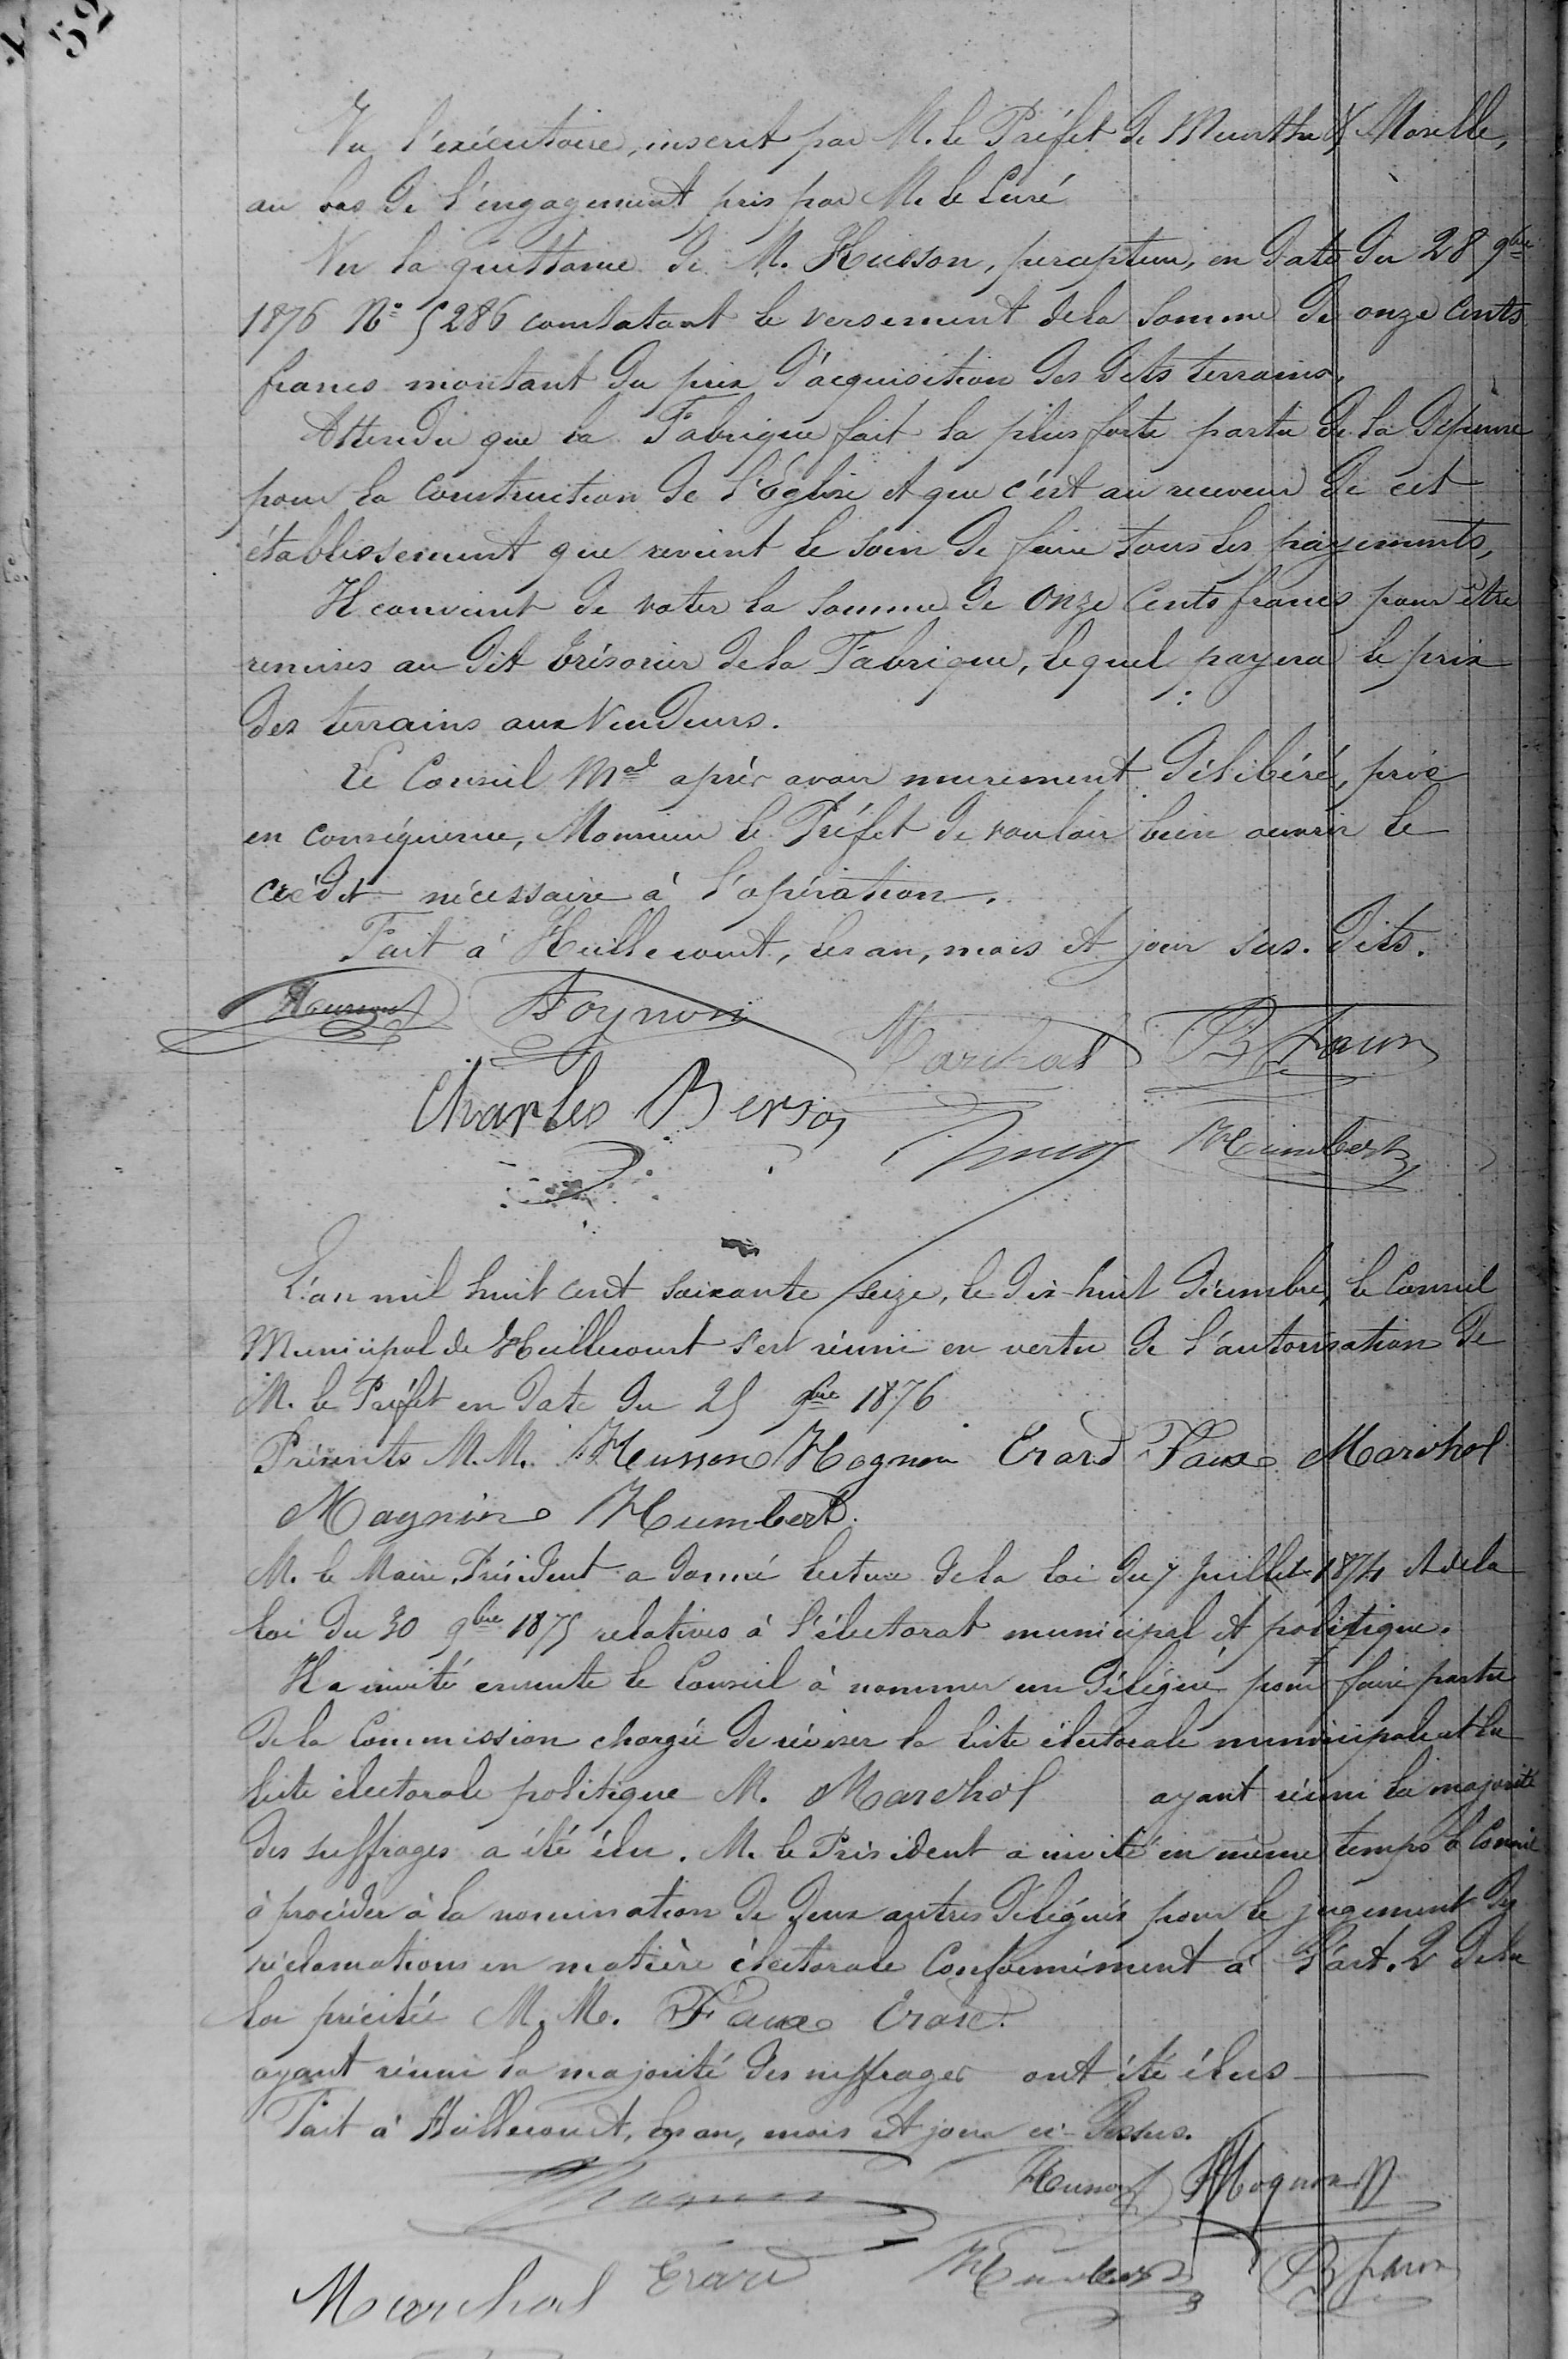 52
Vu l'exécutoire, inscrit par M. le Préfet de Meurthe & Moselle,
au bas de l'engagement pris par M. le Curé
Vu la quittance de M. Husson, percepteur, en date du 28 9bre
1876 N° 5286 constatant le versement de la somme de onze cents
francs montant du prix d'acquisition des dits terrains,
Attendu que la Fabrique fait la plus forte partie de la dépense
pour la construction de l'Eglise et que c'est au receveur de cet
établissement que revient le soin de faire tous les payements,
Il convient de voter la somme de Onze Cents francs pour être
remises au dit trésorier de la Fabrique, lequel payera le prix
des terrains aux Vendeurs.
Le Conseil Mal après avoir murement délibéré, prie
en conséquence, Monsieur le Préfet de vouloir bien ouvrir le
crédit nécessaire à l'opération.
Fait à Heillecourt, les an, mois et jour sus-dits.
Husson Marchal B Faux
Charles Berson Humbert
L'an mil huit cent soixante seize, le dix-huit décembre, le Conseil
Municipal de Heillecourt s'est réuni en vertu de l'autorisation de
M. le Préfet en date du 25 9bre 1876
Présents M.M. Husson Hognon Erard Faux Marchal
Magnin Humbert.
M. le Maire, Président a donné lecture de la loi du 7 Juillet 1874 et de la
loi du 30 9bre 1875 relatives à l'électorat municipal et politique.
Il a invité ensuite le Conseil à nommer un délégué pour faire partie
de la Commission chargée de réviser la liste électorale municipale et la
liste électorale politique M. Marchal ayant réuni la majorité
des suffrages a été élu. M. le Président a invité en même temps le Conseil
à procéder à la nomination de deux autres délégués pour le jugement des
réclamations en matière électorale Conformément à l'art. 2 de la
loi précitée M.M. Faux Erard.
ayant réuni la majorité des suffrages ont été élus
Fait à Heillecourt, les an, mois et jour ci-dessus.
Magnin Husson Hognon
Marchal Erard Humbert B Faux